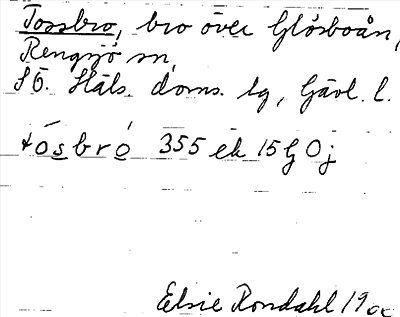 Tossbro, bro över Glösboån,
Rengsjö sn,
SÖ. Häls. doms. lg, Gävl. l.
tósbró 355 ek 15 G Oj
Elsie Rondahl 19